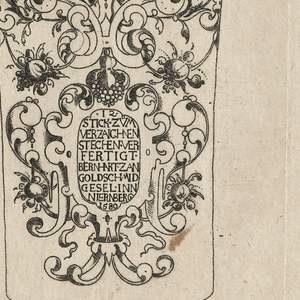 ·12·
STICK·ZVM
VERZAICHNEN
STECHEN·VER
FERTIGT·
BERNHART·ZAN
GOLDSCHMID
GESEL·INN
NIERNBERG
1580